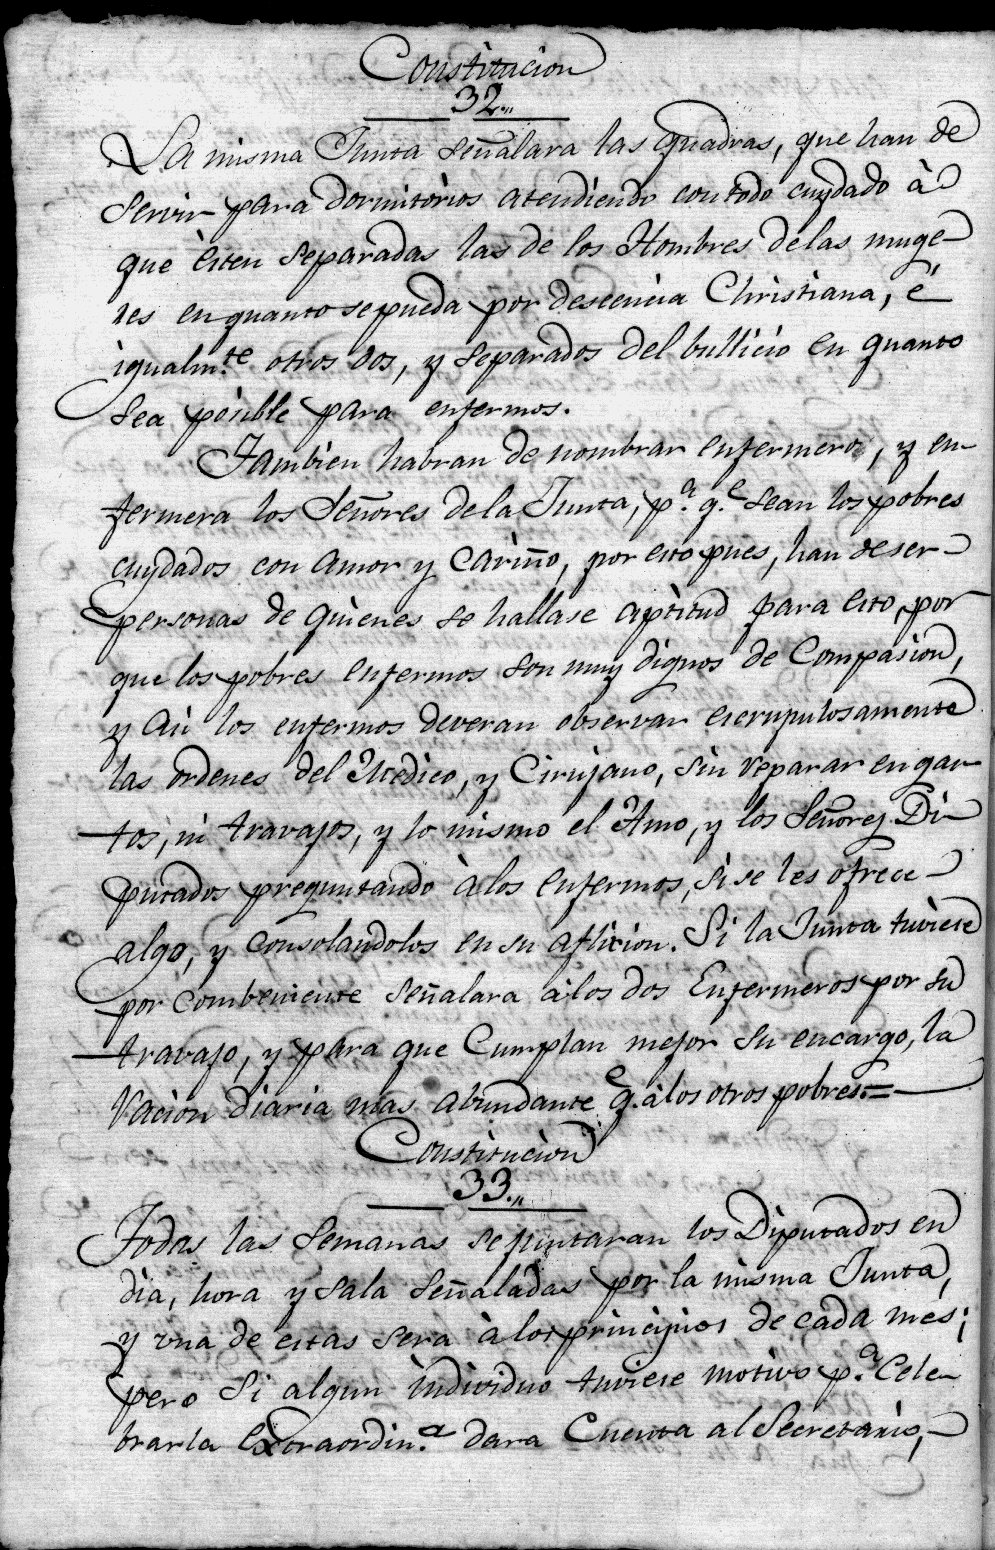 Constitucion
32.,,
La misma Junta señalara las quadras, que han de
servir para dormitorios atendiendo con todo cuydado à
que èsten separadas las de los Hombres de las muge-
res en quanto se pueda por descencia Christiana, é
igualm.te otros dos, y separados del bullicio en quanto
sea posible para enfermos.
Tambien habran de nombrar enfermero, y en-
fermera los Señores de la Junta, p.a q.e sean los pobres
cuydados con amor y cariño, por esto pues, han de ser
personas de quienes se hallase aptitud para esto, por
que los pobres enfermos son muy dignos de Compasion,
y asi los enfermos deveran observar escrupulosamente
las ordenes del Medico, y Cirujano, sin reparar en gas-
tos, ni travajos, y lo mismo el Amo, y los Señores Di-
putados preguntando à los enfermos, si se les ofrece
algo, y consolandolos en su aflixion. Si la Junta tuviese
por combeniente señalara à los dos Enfermeros por su
travajo, y para que Cumplan mejor su encargo, la
racion diaria mas abundante q.e à los otros pobres.=
Constitucion
33.,,
Todas las semanas se juntaran los Diputados en
dia, hora y sala señaladas por la misma Junta,
y vna de estas sera à los principios de cada mes;
pero si algun individuo tuviese motivo p.a Cele-
brarla extraordin.a dara Cuenta al Secretario,